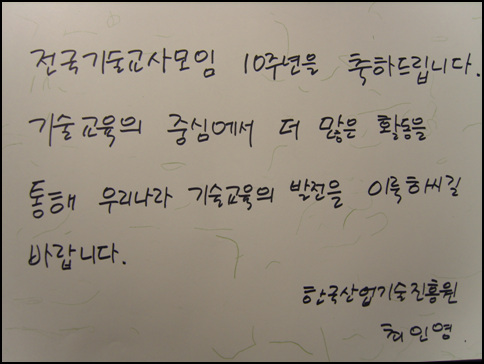 전국기술교사모임 10주년을 축하드립니다.
기술교육의 중심에서 더 많은 활동을
통해 우리나라 기술교육의 발전을 이룩하씨길
바랍니다.
한국산업기술진흥원
최인영.